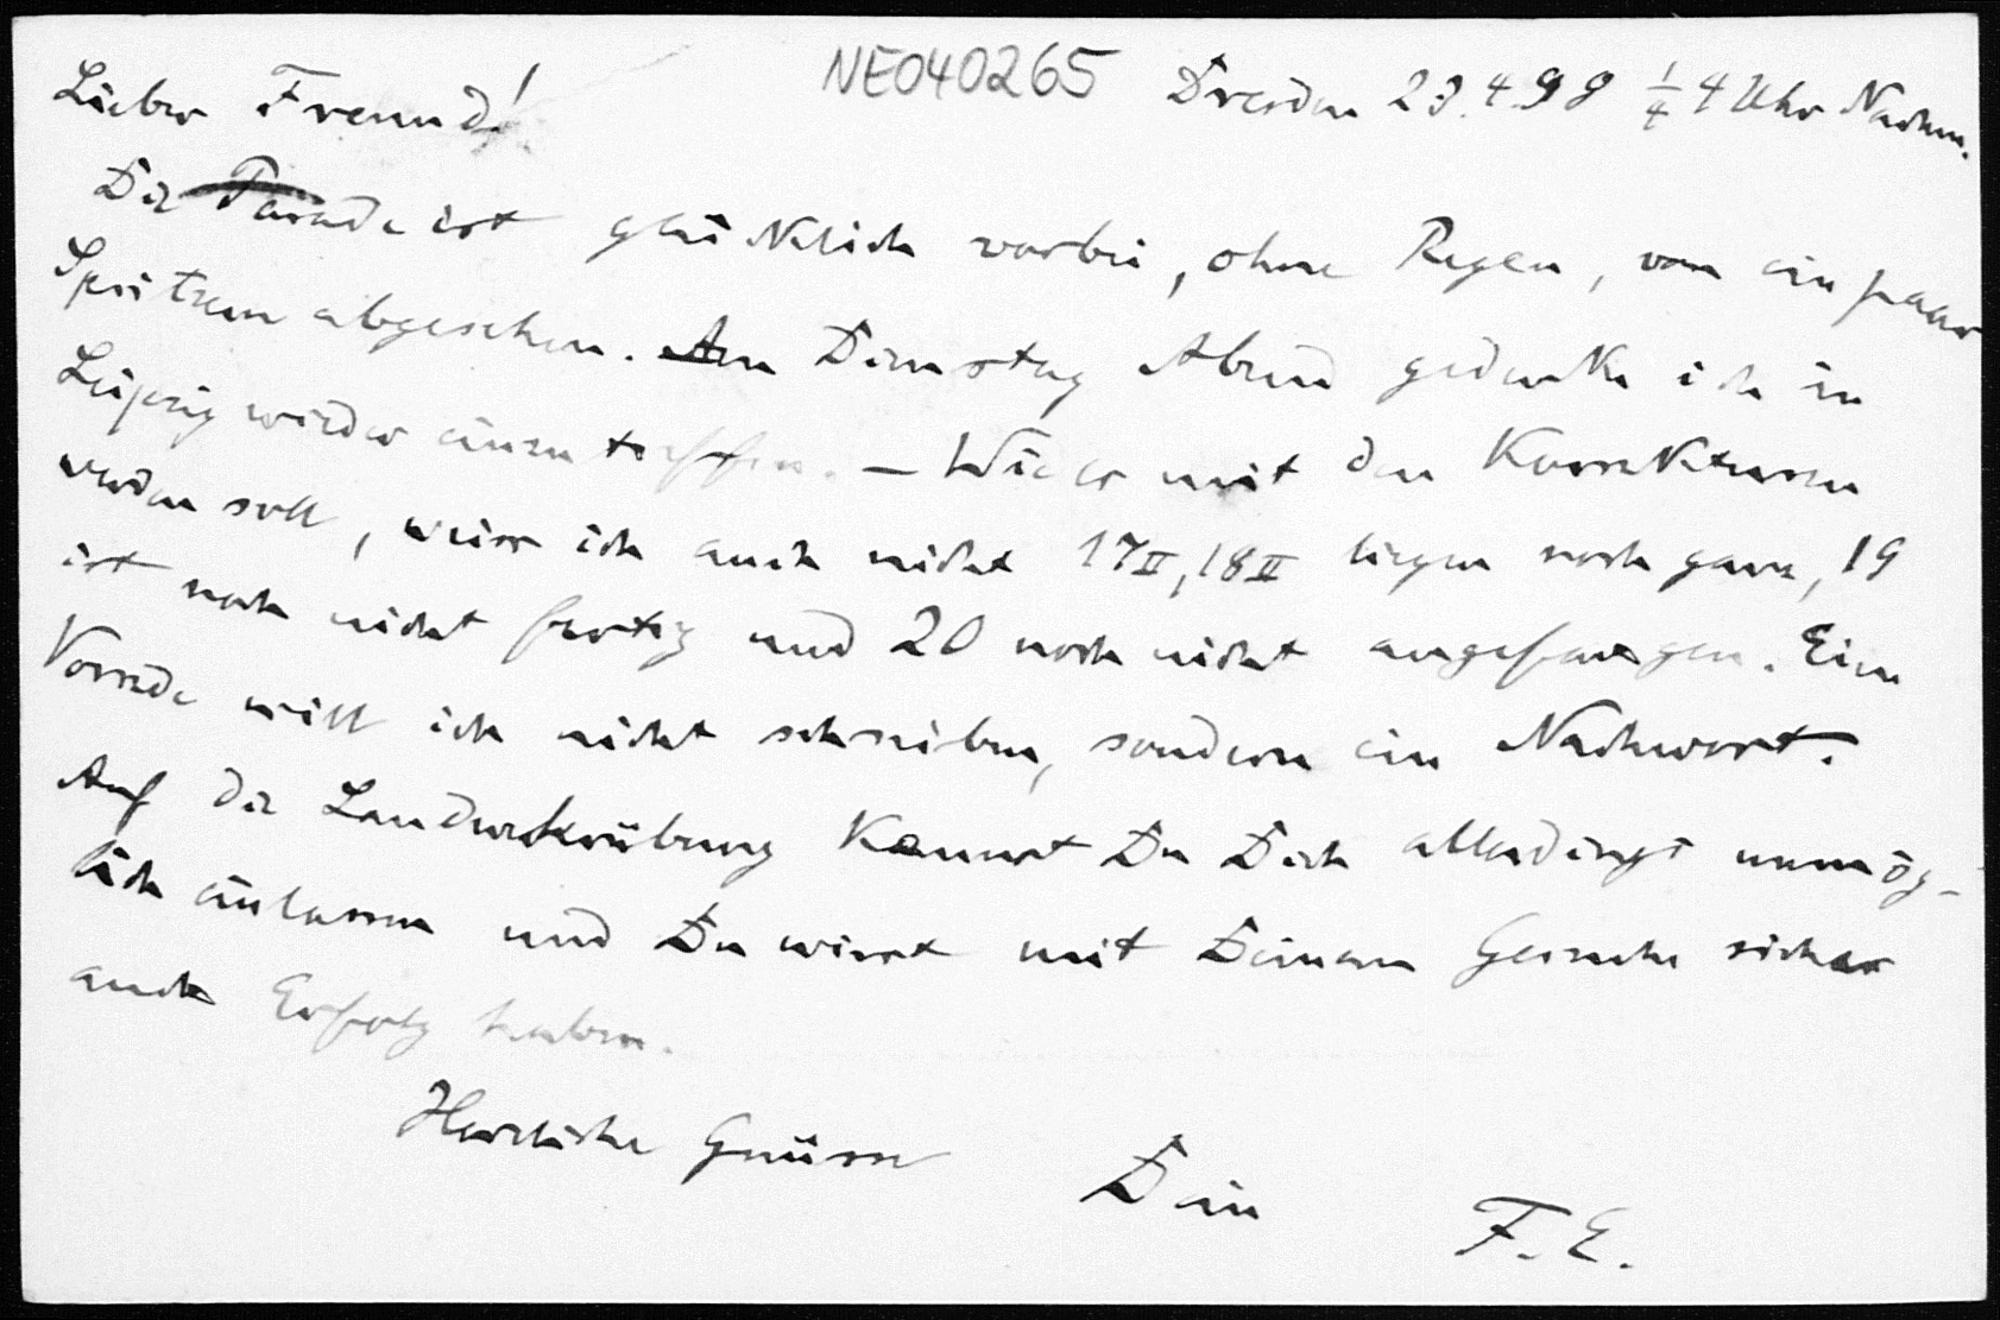 NE040265
Dresden 23.4.98 1/4 4 Uhr Nachm.
Lieber Freund!
Die Parade ist glücklich vorbei, ohne Regen, von ein paar
Spritzern abgesehen. Am Dienstag Abend gedenke ich in
Leipzig wieder einzutreffen. – Wie es mit den Korrekturen
werden soll, weiss ich auch nicht 17II, 18II liegen noch ganz, 19
ist noch nicht fertig und 20 noch nicht angefangen. Eine
Vorrede will ich nicht schreiben, sondern ein Nachwort.
Auf die Landwehrübung kannst Du Dich allerdings unmög-
lich einlassen und Du wirst mit Deinem Gesuche sicher
auch Erfolg haben.
Herzliche Grüsse
Dein
F. E.